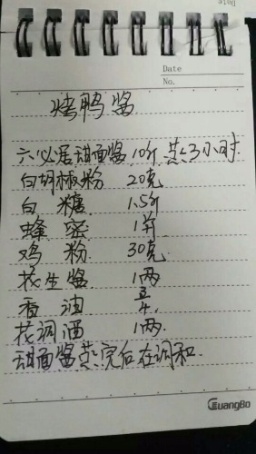 Date
No.
烤鸭酱
六必居甜面酱 10斤 蒸3小时
白胡椒粉 20克
白糖 1.5斤
蜂蜜 1斤
鸡粉 30克
花生酱 1两
香油
花调酒 1两.
甜面酱蒸完后在调和.
GuangBo